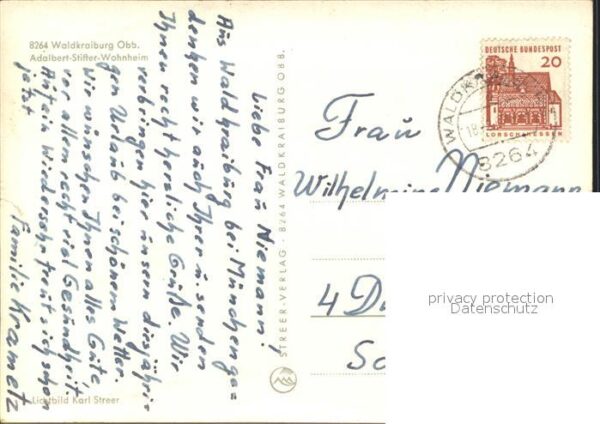 8264 Waldkraiburg Obb.
Adalbert-Stifter-Wohnheim
Liebe Frau Niemann!
Aus Waldkraiburg bei München ge=
denken wir auch Ihrer u. senden
Ihnen recht herzliche Grüße. Wir
verbringen hier unsern diesjähri-
gen Urlaub bei schönem Wetter.
Wir wünschen Ihnen alles Gute,
vor allem recht viel Gesundheit.
Auf ein Wiedersehn freut sich schon
jetzt
Familie Krametz
Lichtbild Karl Streer
STREER-VERLAG · 8264 WALDKRAIBURG OBB.
DEUTSCHE BUNDESPOST
20
LORSCH/HESSEN
WALDKRAIBURG
18
8264
Frau
Wilhelmine Niemann
4 D
Sc
privacy protection
Datenschutz